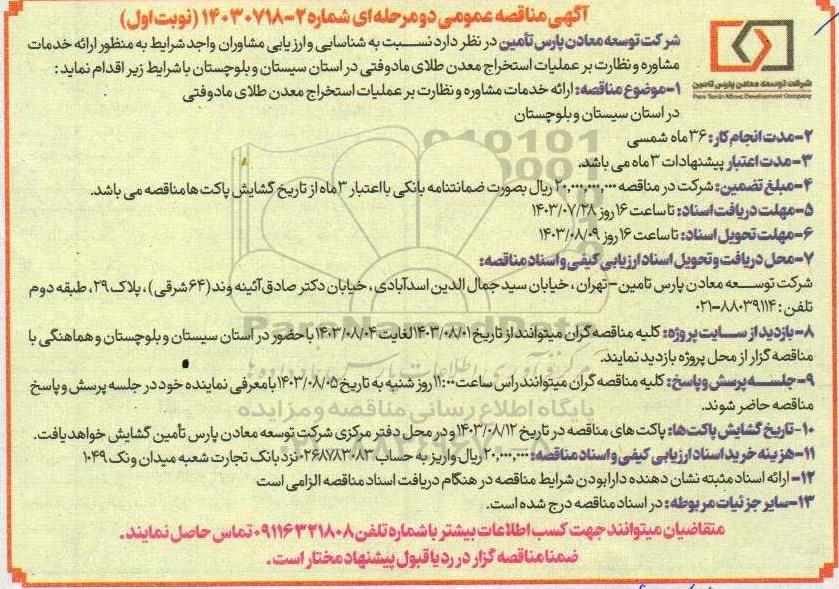 آگهی مناقصه عمومی دو مرحله ای شماره ۲-۱۴۰۳۰۷۱۸ (نوبت اول)
شرکت توسعه معادن پارس تأمین در نظر دارد نسبت به شناسایی و ارزیابی مشاوران واجد شرایط به منظور ارائه خدمات
مشاوره و نظارت بر عملیات استخراج معدن طلای مادوفتی در استان سیستان و بلوچستان با شرایط زیر اقدام نماید:
شرکت توسعه معادن پارس تامین
Pars Tamin Mines Development Company
۱-موضوع مناقصه: ارائه خدمات مشاوره و نظارت بر عملیات استخراج معدن طلای مادوفتی
در استان سیستان و بلوچستان
۲-مدت انجام کار: ۳۶ ماه شمسی
۳-مدت اعتبار پیشنهادات ۳ ماه می باشد.
۴-مبلغ تضمین: شرکت در مناقصه ۲۰,۰۰۰,۰۰۰,۰۰۰ ریال بصورت ضمانتنامه بانکی با اعتبار ۳ ماه از تاریخ گشایش پاکت ها مناقصه می باشد.
۵-مهلت دریافت اسناد: تا ساعت ۱۶ روز ۱۴۰۳/۰۷/۲۸
۶-مهلت تحویل اسناد: تا ساعت ۱۶ روز ۱۴۰۳/۰۸/۰۹
۷-محل دریافت و تحویل اسناد ارزیابی کیفی و اسناد مناقصه:
شرکت توسعه معادن پارس تامین-تهران، خیابان سید جمال الدین اسدآبادی، خیابان دکتر صادق آئینه وند (۶۴ شرقی)، پلاک ۲۹، طبقه دوم
تلفن: ۸۸۰۳۹۱۱۴-۰۲۱
۸-بازدید از سایت پروژه: کلیه مناقصه گران میتوانند از تاریخ ۱۴۰۳/۰۸/۰۱ لغایت ۱۴۰۳/۰۸/۰۴ با حضور در استان سیستان و بلوچستان و هماهنگی با
مناقصه گزار از محل پروژه بازدید نمایند.
۹-جلسه پرسش و پاسخ: کلیه مناقصه گران میتوانند راس ساعت ۱۱:۰۰ روز شنبه به تاریخ ۱۴۰۳/۰۸/۰۵ با معرفی نماینده خود در جلسه پرسش و پاسخ
مناقصه حاضر شوند.
پایگاه اطلاع رسانی مناقصه و مزایده
۱۰-تاریخ گشایش پاکت ها: پاکت های مناقصه در تاریخ ۱۴۰۳/۰۸/۱۲ و در محل دفتر مرکزی شرکت توسعه معادن پارس تأمین گشایش خواهد یافت.
۱۱-هزینه خرید اسناد ارزیابی کیفی و اسناد مناقصه: ۲۰,۰۰۰,۰۰۰ ریال واریز به حساب ۰۲۶۸۷۸۳۰۸۳ نزد بانک تجارت شعبه میدان ونک ۱۰۴۹
۱۲-ارائه اسناد مثبته نشان دهنده دارا بودن شرایط مناقصه در هنگام دریافت اسناد مناقصه الزامی است
۱۳-سایر جزئیات مربوطه: در اسناد مناقصه درج شده است.
متقاضیان میتوانند جهت کسب اطلاعات بیشتر با شماره تلفن ۰۹۱۱۶۳۲۱۸۰۸ تماس حاصل نمایند.
ضمنا مناقصه گزار در رد یا قبول پیشنهاد مختار است.